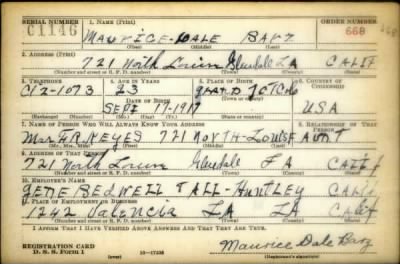 SERIAL NUMBER 1. NAME (Print) ORDER NUMBER
C1146 MAURICE-DALE 668
(First) (Middle) (Last)
2. ADDRESS (Print)
721 North Glendale LA CALIF
(Number and street or R. F. D. number) (Town) (County) (State)
3. TELEPHONE 4. AGE IN YEARS 5. PLACE OF BIRTH 6. COUNTRY OF CITIZENSHIP
23
DATE OF BIRTH
SEPT 7-1917 USA
(Exchange) (Number) (Mo.) (Day) (Yr.) (State or country)
7. NAME OF PERSON WHO WILL ALWAYS KNOW YOUR ADDRESS 8. RELATIONSHIP OF THAT PERSON
Mrs F R KEYES 721 NORTH-LOUISE AUNT
(Mr., Mrs., Miss) (First) (Middle) (Last)
9. ADDRESS OF THAT PERSON
721 North Glendale LA CALIF
(Number and street or R. F. D. number) (Town) (County) (State)
10. EMPLOYER'S NAME
GENE BEDWELL HUNTLEY
11. PLACE OF EMPLOYMENT OR BUSINESS
1242 Valencia LA LA Calif
(Number and street or R. F. D. number) (Town) (County) (State)
I AFFIRM THAT I HAVE VERIFIED ABOVE ANSWERS AND THAT THEY ARE TRUE.
REGISTRATION CARD
D. S. S. FORM 1 (over) Maurice Dale
(Registrant's signature)